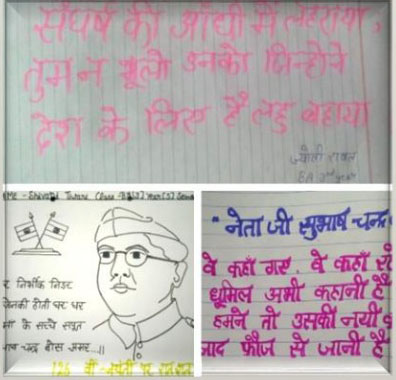 संघर्ष की आंधी में लहराया,
तुम न भूलो उनको जिन्होने
देश के लिए है लहु बहाया
ज्योती रावत
BA 3rd year
NAME - Shivani Tiwari
र निर्भीक निडर
जिनकी होती घर घर
माँ के सच्चे सपूत
चन्द्र बोस अमर...॥
126 वीं जयंती पर शत शत
"नेता जी सुभाष चन्द्र
वे कहाँ गए, वे कहाँ रहे
धूमिल अभी कहानी है
हमने तो उसकी नयी
जाद फौज से जानी है